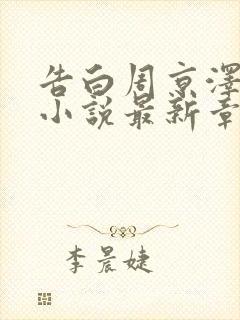 告白周京澤
小説最新章
李晨婕